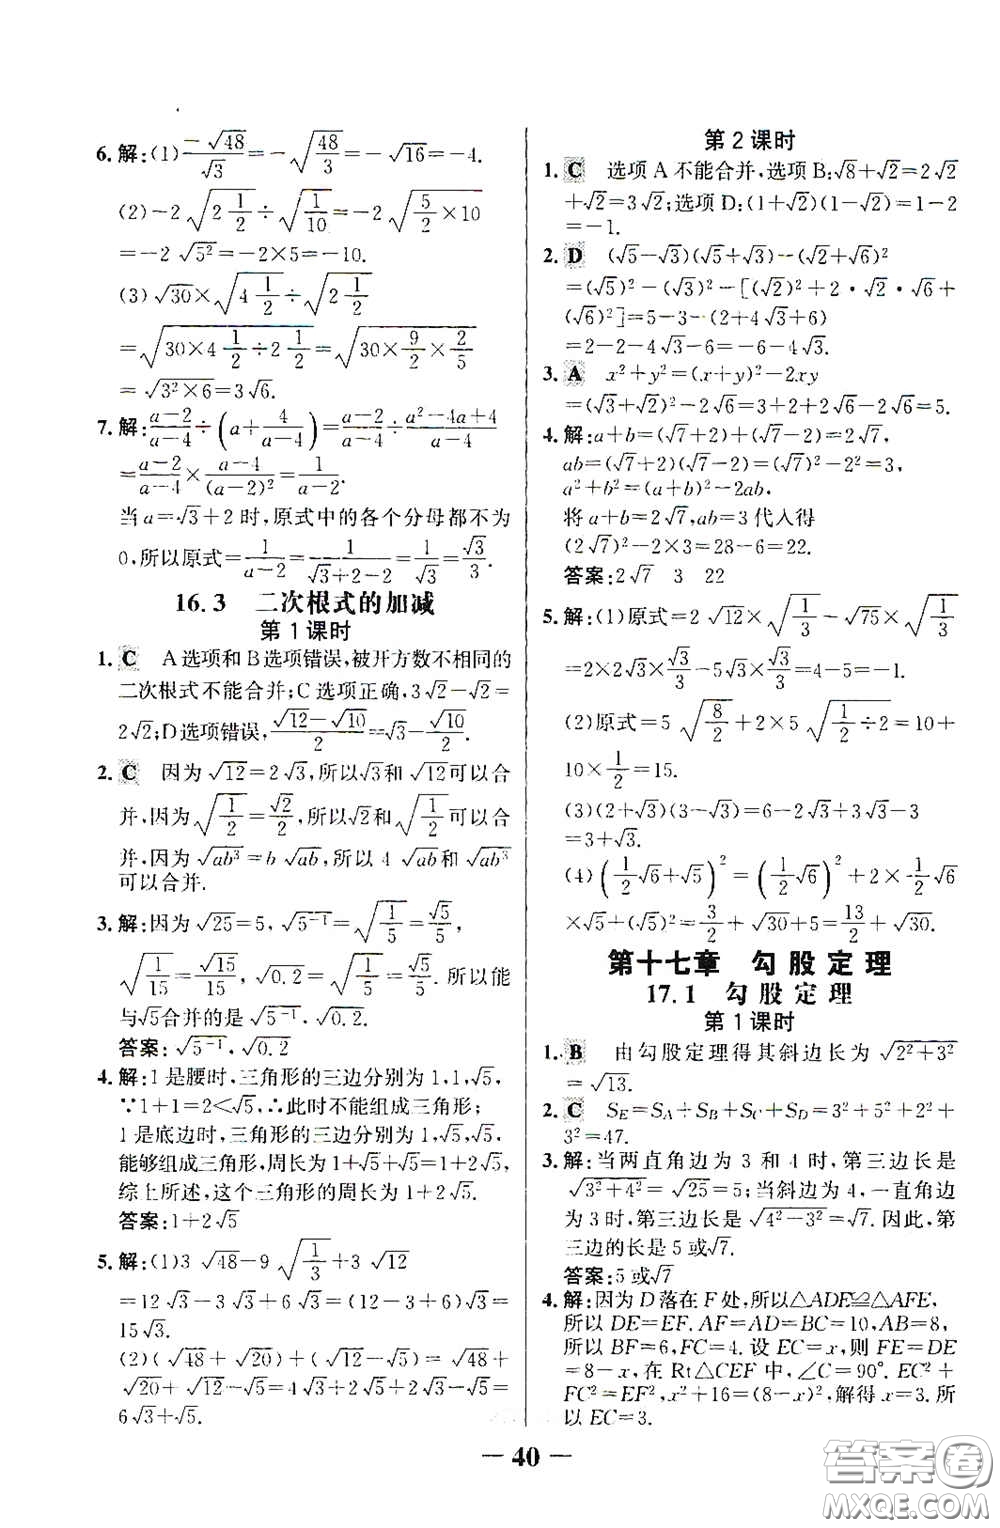 6. 解:(1) -√48/√3 = -√(48/3) = -√16 = -4.
(2) -2√(2 1/2) ÷ √(1/10) = -2√(5/2 × 10)
= -2√5² = -2×5 = -10.
(3) √30 × √(4 1/2) ÷ √(2 1/2)
= √(30×4 1/2÷2 1/2) = √(30×9/2×2/5)
= √(3²×6) = 3√6.
7. 解: (a-2)/(a-4) ÷ (a + 4/(a-4)) = (a-2)/(a-4) ÷ (a²-4a+4)/(a-4)
= (a-2)/(a-4) × (a-4)/(a-2)² = 1/(a-2).
当a=√3+2时,原式中的各个分母都不为
0,所以原式= 1/(a-2) = 1/(√3+2-2) = 1/√3 = √3/3.
16.3 二次根式的加减
第1课时
1. C A选项和B选项错误,被开方数不相同的
二次根式不能合并;C选项正确,3√2-√2=
2√2;D选项错误, (√12-√10)/2 = √3 - √10/2.
2. C 因为√12=2√3,所以√3和√12可以合
并,因为√(1/2) = √2/2,所以√2和√(1/2)可以合
并,因为√ab³=b√ab,所以4√ab和√ab³
可以合并.
3. 解:因为√25=5, √5⁻¹ = √(1/5) = √5/5,
√(1/15) = √15/15, √0.2 = √(1/5) = √5/5,所以能
与√5合并的是√5⁻¹,√0.2.
答案:√5⁻¹,√0.2
4. 解:1是腰时,三角形的三边分别为1,1,√5,
∵1+1=2<√5,∴此时不能组成三角形;
1是底边时,三角形的三边分别为1,√5,√5,
能够组成三角形,周长为1+√5+√5=1+2√5,
综上所述,这个三角形的周长为1+2√5.
答案:1+2√5
5. 解:(1)3√48-9√(1/3)+3√12
=12√3-3√3+6√3=(12-3+6)√3=
15√3.
(2)(√48+√20)+(√12-√5)=√48+
√20+√12-√5=4√3+2√5+2√3-√5=
6√3+√5.
第2课时
1. C 选项A不能合并,选项B:√8+√2=2√2
+√2=3√2;选项D:(1+√2)(1-√2)=1-2
=-1.
2. D (√5-√3)(√5+√3)-(√2+√6)²
=(√5)²-(√3)²-[(√2)²+2·√2·√6+
(√6)²]=5-3-(2+4√3+6)
=2-2-4√3-6=-6-4√3.
3. A x²+y²=(x+y)²-2xy
=(√3+√2)²-2√6=3+2+2√6-2√6=5.
4. 解:a+b=(√7+2)+(√7-2)=2√7,
ab=(√7+2)(√7-2)=(√7)²-2²=3,
a²+b²=(a+b)²-2ab,
将a+b=2√7,ab=3代入得
(2√7)²-2×3=28-6=22.
答案:2√7 3 22
5. 解:(1)原式=2√12×√(1/3)-√75×√(1/3)
=2×2√3×√3/3-5√3×√3/3=4-5=-1.
(2)原式=5√(8/2)+2×5√(1/2÷2)=10+
10×1/2=15.
(3)(2+√3)(3-√3)=6-2√3+3√3-3
=3+√3.
(4)(1/2√6+√5)²=(1/2√6)²+2×1/2√6
×√5+(√5)²=3/2+√30+5=13/2+√30.
第十七章 勾股定理
17.1 勾股定理
第1课时
1. B 由勾股定理得其斜边长为√(2²+3²)
=√13.
2. C S_E=S_A+S_B+S_C+S_D=3²+5²+2²+
3²=47.
3. 解:当两直角边为3和4时,第三边长为
√(3²+4²)=√25=5;当斜边为4,一直角边
为3时,第三边长是√(4²-3²)=√7.因此,第
三边的长是5或√7.
答案:5或√7
4. 解:因为D落在F处,所以△ADE≌△AFE,
所以DE=EF.AF=AD=BC=10,AB=8,
所以BF=6,FC=4.设EC=x,则FE=DE
=8-x,在Rt△CEF中,∠C=90°.EC²+
FC²=EF²,x²+16=(8-x)²,解得x=3.所
以EC=3.
— 40 —
答案圈
MXQE.COM